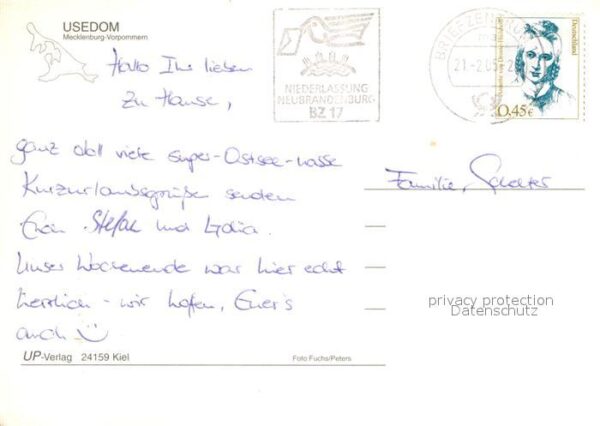 USEDOM
Mecklenburg-Vorpommern
Hallo Ihr lieben
zu Hause,
ganz doll viele super-Ostsee-nasse
Kurzurlaubsgrüße senden
Euch Stefan und Lydia.
Unser Wochenende war hier echt
herrlich - wir hofen, Euer's
auch
UP-Verlag 24159 Kiel
Foto Fuchs/Peters
NIEDERLASSUNG
NEUBRANDENBURG
BZ 17
BRIEFZENTRUM
21-2.05
Deutschland
0,45€
Familie
privacy protection
Datenschutz